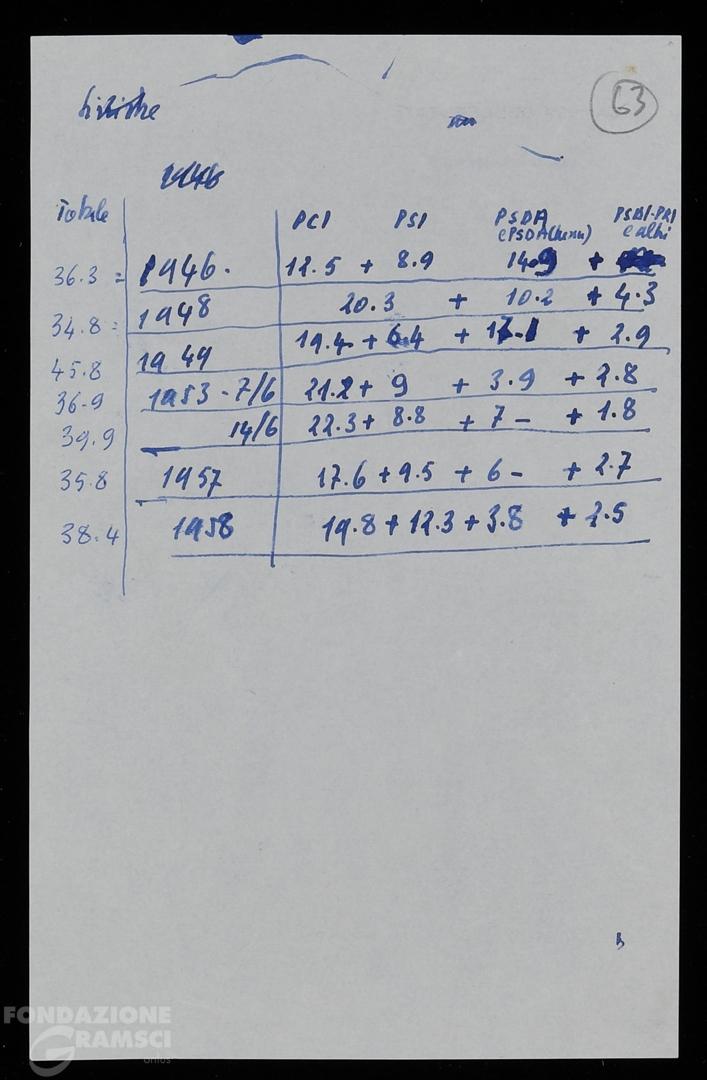 63
Sinistre
1946
Totale PCI PSI PSDA PSDI-PRI
e altri
36.3 = 1946. 12.5 + 8.9 14.9 +
34.8 = 1948 20.3 + 10.2 + 4.3
45.8 1949 19.4 + 6.4 + 17.1 + 2.9
36.9 1953 - 7/6 21.2 + 9 + 3.9 + 2.8
39.9 14/6 22.3 + 8.8 + 7 - + 1.8
35.8 1957 17.6 + 9.5 + 6 - + 2.7
38.4 1958 19.8 + 12.3 + 3.8 + 2.5
FONDAZIONE
GRAMSCI
onlus